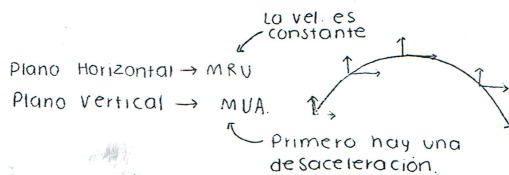 La vel. es
constante
Plano Horizontal → MRU
Plano Vertical → MUA.
Primero hay una
desaceleración.